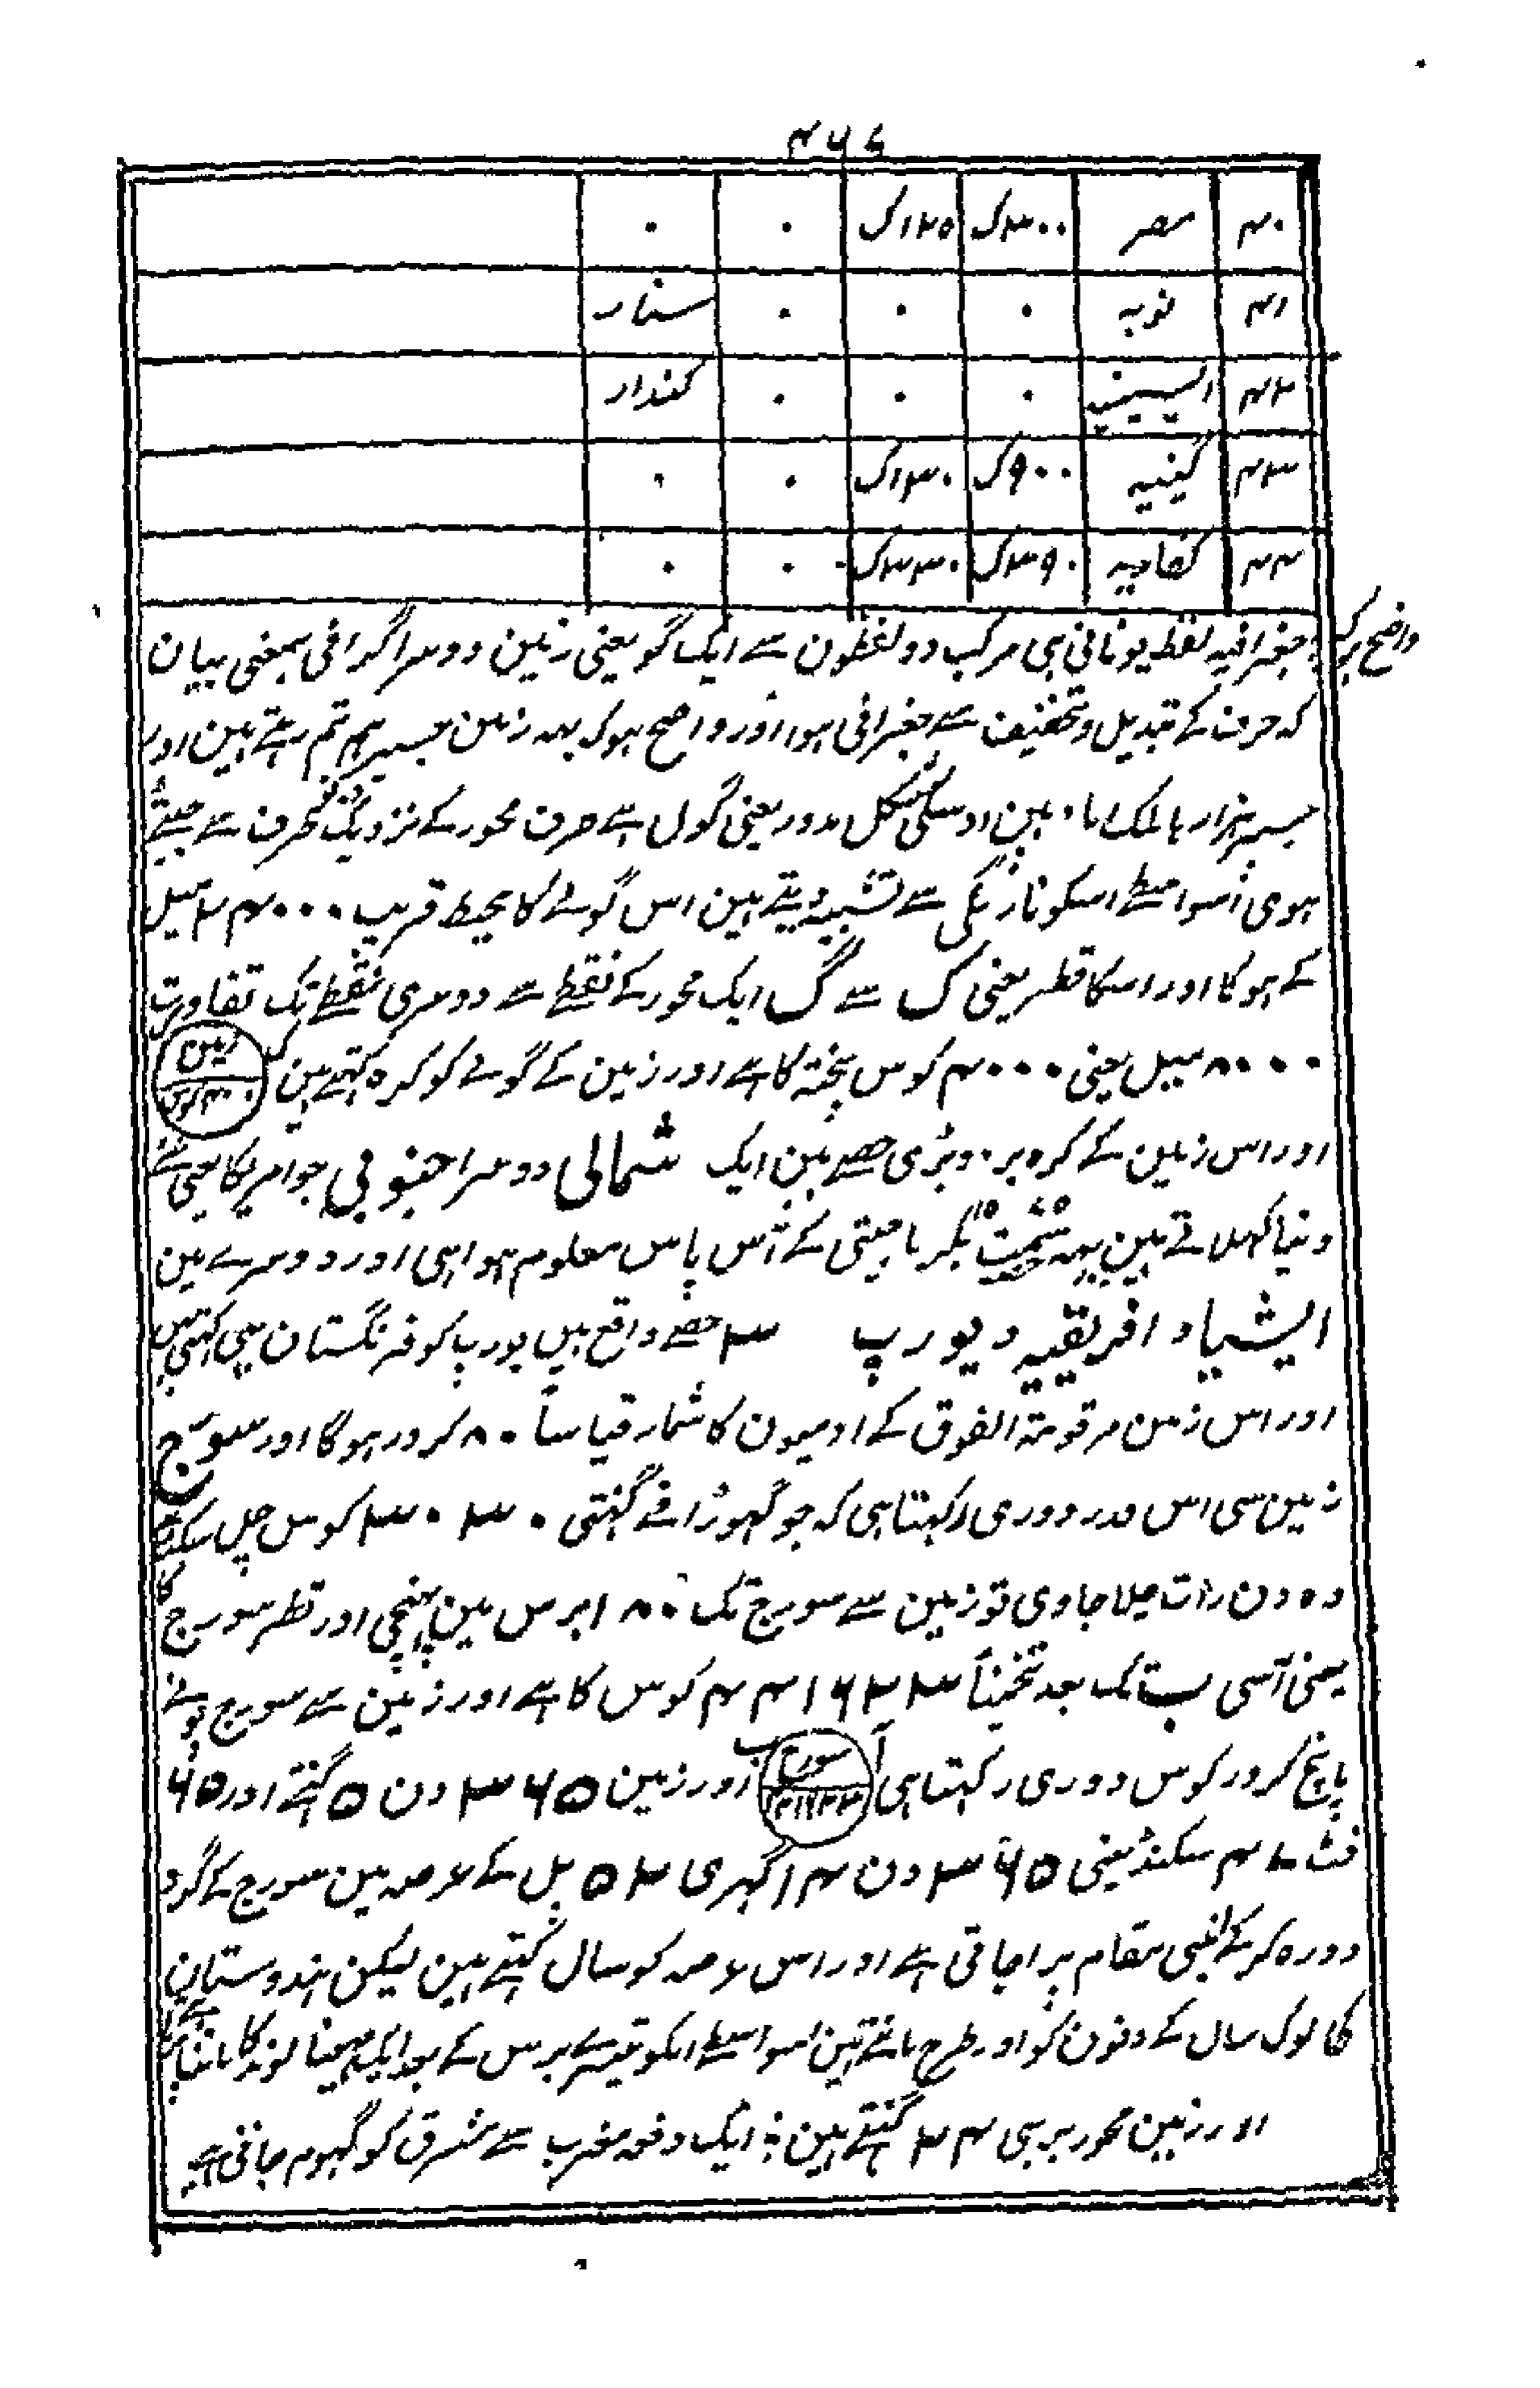 ۴۶۷
۴۰ مصر ۳۰۰ک ۱۲۵ک ۰ ۰
۴۱ نوبہ ۰ ۰ ۰ سنار
۴۲ ۰ ۰ ۰ کندار
۴۳ گینیہ ۹۰۰ک ۱۳۰ک ۰ ۰
۴۴ ۳۹۰ک ۳۳۰ک ۰ ۰
واضح ہو کہ جغرافیہ لفظ یونانی ہی مرکب دو لفظون سے ایک گو یعنی زمین دوسرا گرافی بمعنی بیان
کہ حرف کے تبدیل و تخفیف سے جغرافی ہوا اور واضح ہو کہ یہہ زمین جسپر ہم تم رہتے ہین اور
جسپر ہزارہا ملک اباد ہین اوسکی شکل مدور یعنی گول ہے صرف محور کے نزدیک دو طرف سے چپٹے
ہوی اسواسطے اسکو نارنگی سے تشبیہ دیتے ہین اس گولے کا محیط قریب ۲۴۰۰۰ میل
کے ہوگا اور اسکا قطر یعنی ک سے گ ایک محور کے نقطے سے دوسری نقطے تک تفاوت
۸۰۰۰ میل یعنی ۴۰۰۰ کوس پختہ کا ہے اور زمین کے گولے کو کرہ کہتے ہین
زمین
۴۰۰۰ کوس
اور اس زمین کے کرہ پر دو بڑی حصے ہین ایک شمالی دوسرا جنوبی جو امریکا یعنی نئے
دنیا کہلاتے ہین یہہ کے آس پاس معلوم ہوا ہی اور دوسرے مین
ایشیا و افریقیہ و یورپ ۳ حصے واقع ہین یورپ کو فرنگستان بہی کہتی ہین
اور اس زمین مرقومۃ الفوق کے ادمیون کا شمار قیاساً ۸۰ کرور ہوگا اور سورج
زمین سی اس قدر دوری رکہتا ہی کہ جو گہوڑا فے گہنٹی ۳۰ ۳۰ کوس چل سکے
وہ دن رات چلا جاوی تو زمین سے سورج تک ۱۸۰ برس مین پہنچی اور قطر سورج کا
یعنی آ سی ب تک بعد تخمیناً ۴۴۱۶۲۳ کوس کا ہے اور زمین سے سورج پونے
پانچ کرور کوس دوری رکہتا ہی آ سورج ب اور زمین ۳۶۵ دن ۵ گہنٹے اور
سکنڈ یعنی ۳۶۵ دن ۱۴ گہری ۵۲ پل کے عرصہ مین سورج کے گرد
دورہ کرکے اپنی مقام پر اجاتی ہے اور اس عرصہ کو سال کہتے ہین لیکن ہندوستان
کا لوک سال کے دنون کو اور طرح مانتے ہین اسواسطے انکو تیسرے برس کے بعد ایک مہینا لوند کا ماننا
اور زمین محور پر بہی ۲۴ گہنٹے مین ایک دفعہ مغرب سے مشرق کو گہوم جاتی ہے